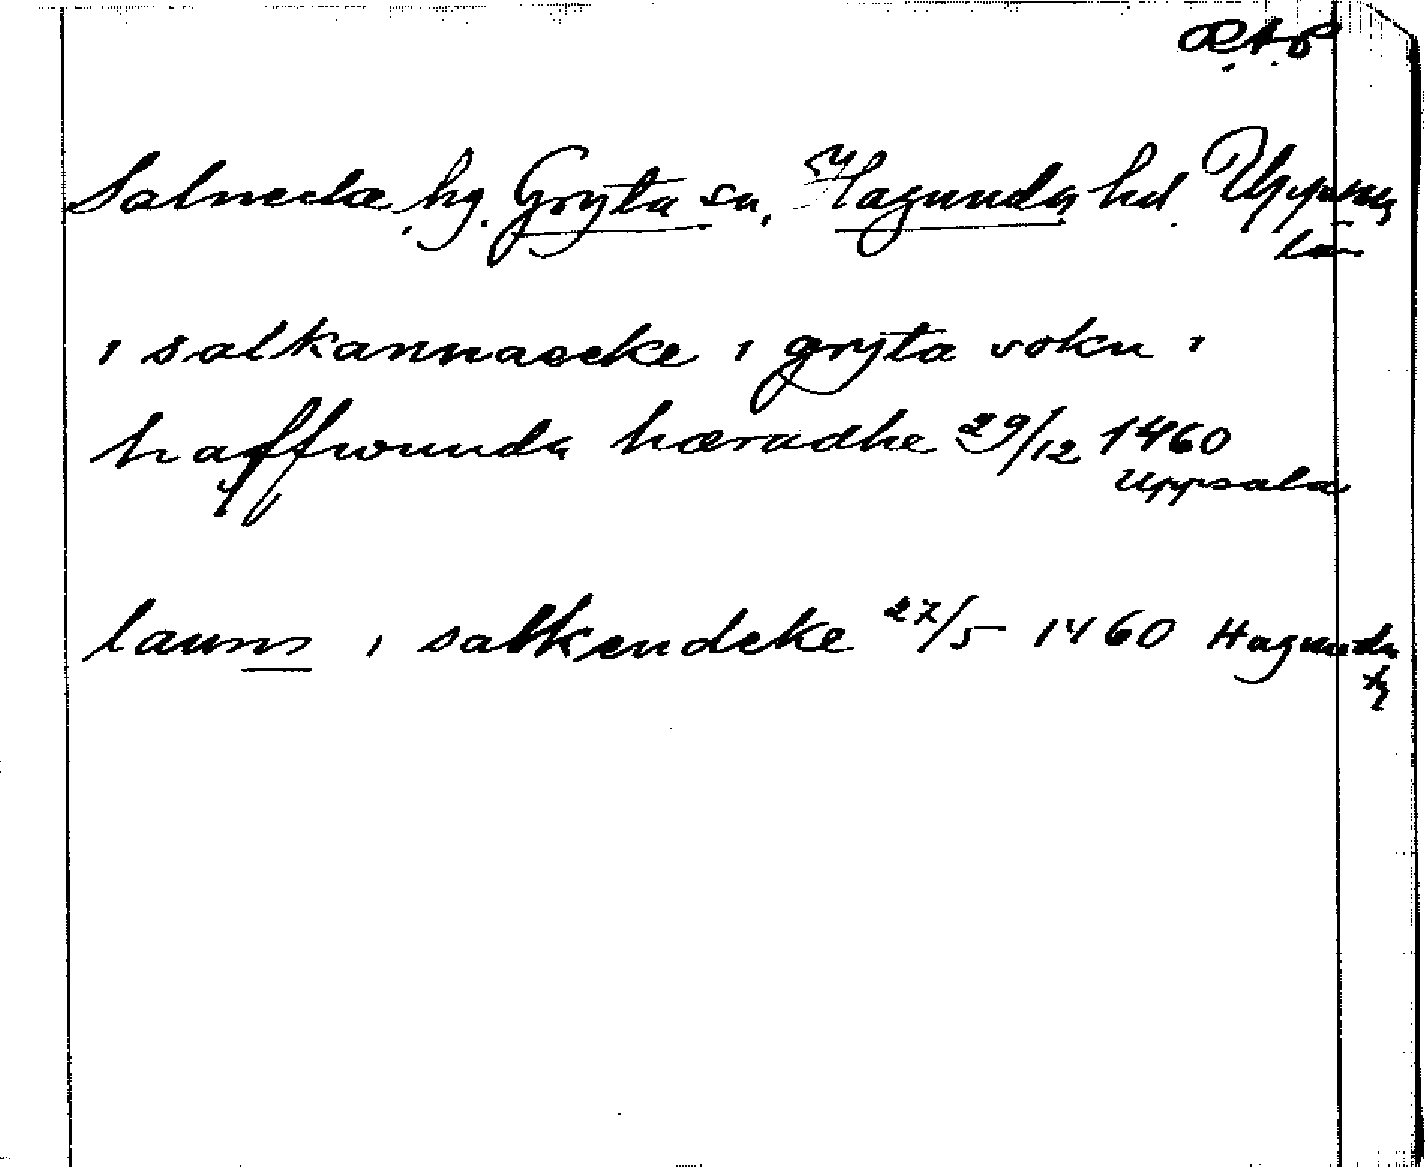 R.A.P.
Salnecke hg. Gryta sn, Hagunda hd. Uppsala
län
i salkannaecke i gryta sokn i
haffwunda hæradhe 29/12 1460
Uppsala
laurns i salkendeke 27/5 1460 Hagunda